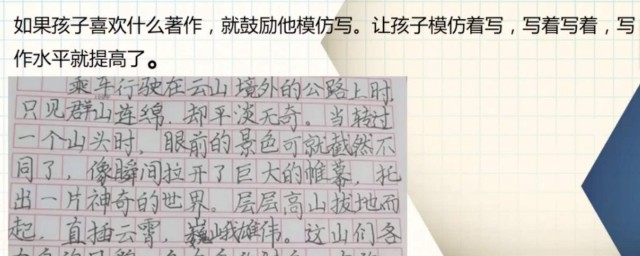 如果孩子喜欢什么著作，就鼓励他模仿写。让孩子模仿着写，写着写着，写
作水平就提高了。
乘车行驶在云山境外的公路上时，
只见群山连绵，却平淡无奇。当转过
一个山头时，眼前的景色可就截然不
同了，像瞬间拉开了巨大的帷幕，托
出一片神奇的世界。层层高山拔地而
起，直插云霄，巍峨雄伟。这山们各